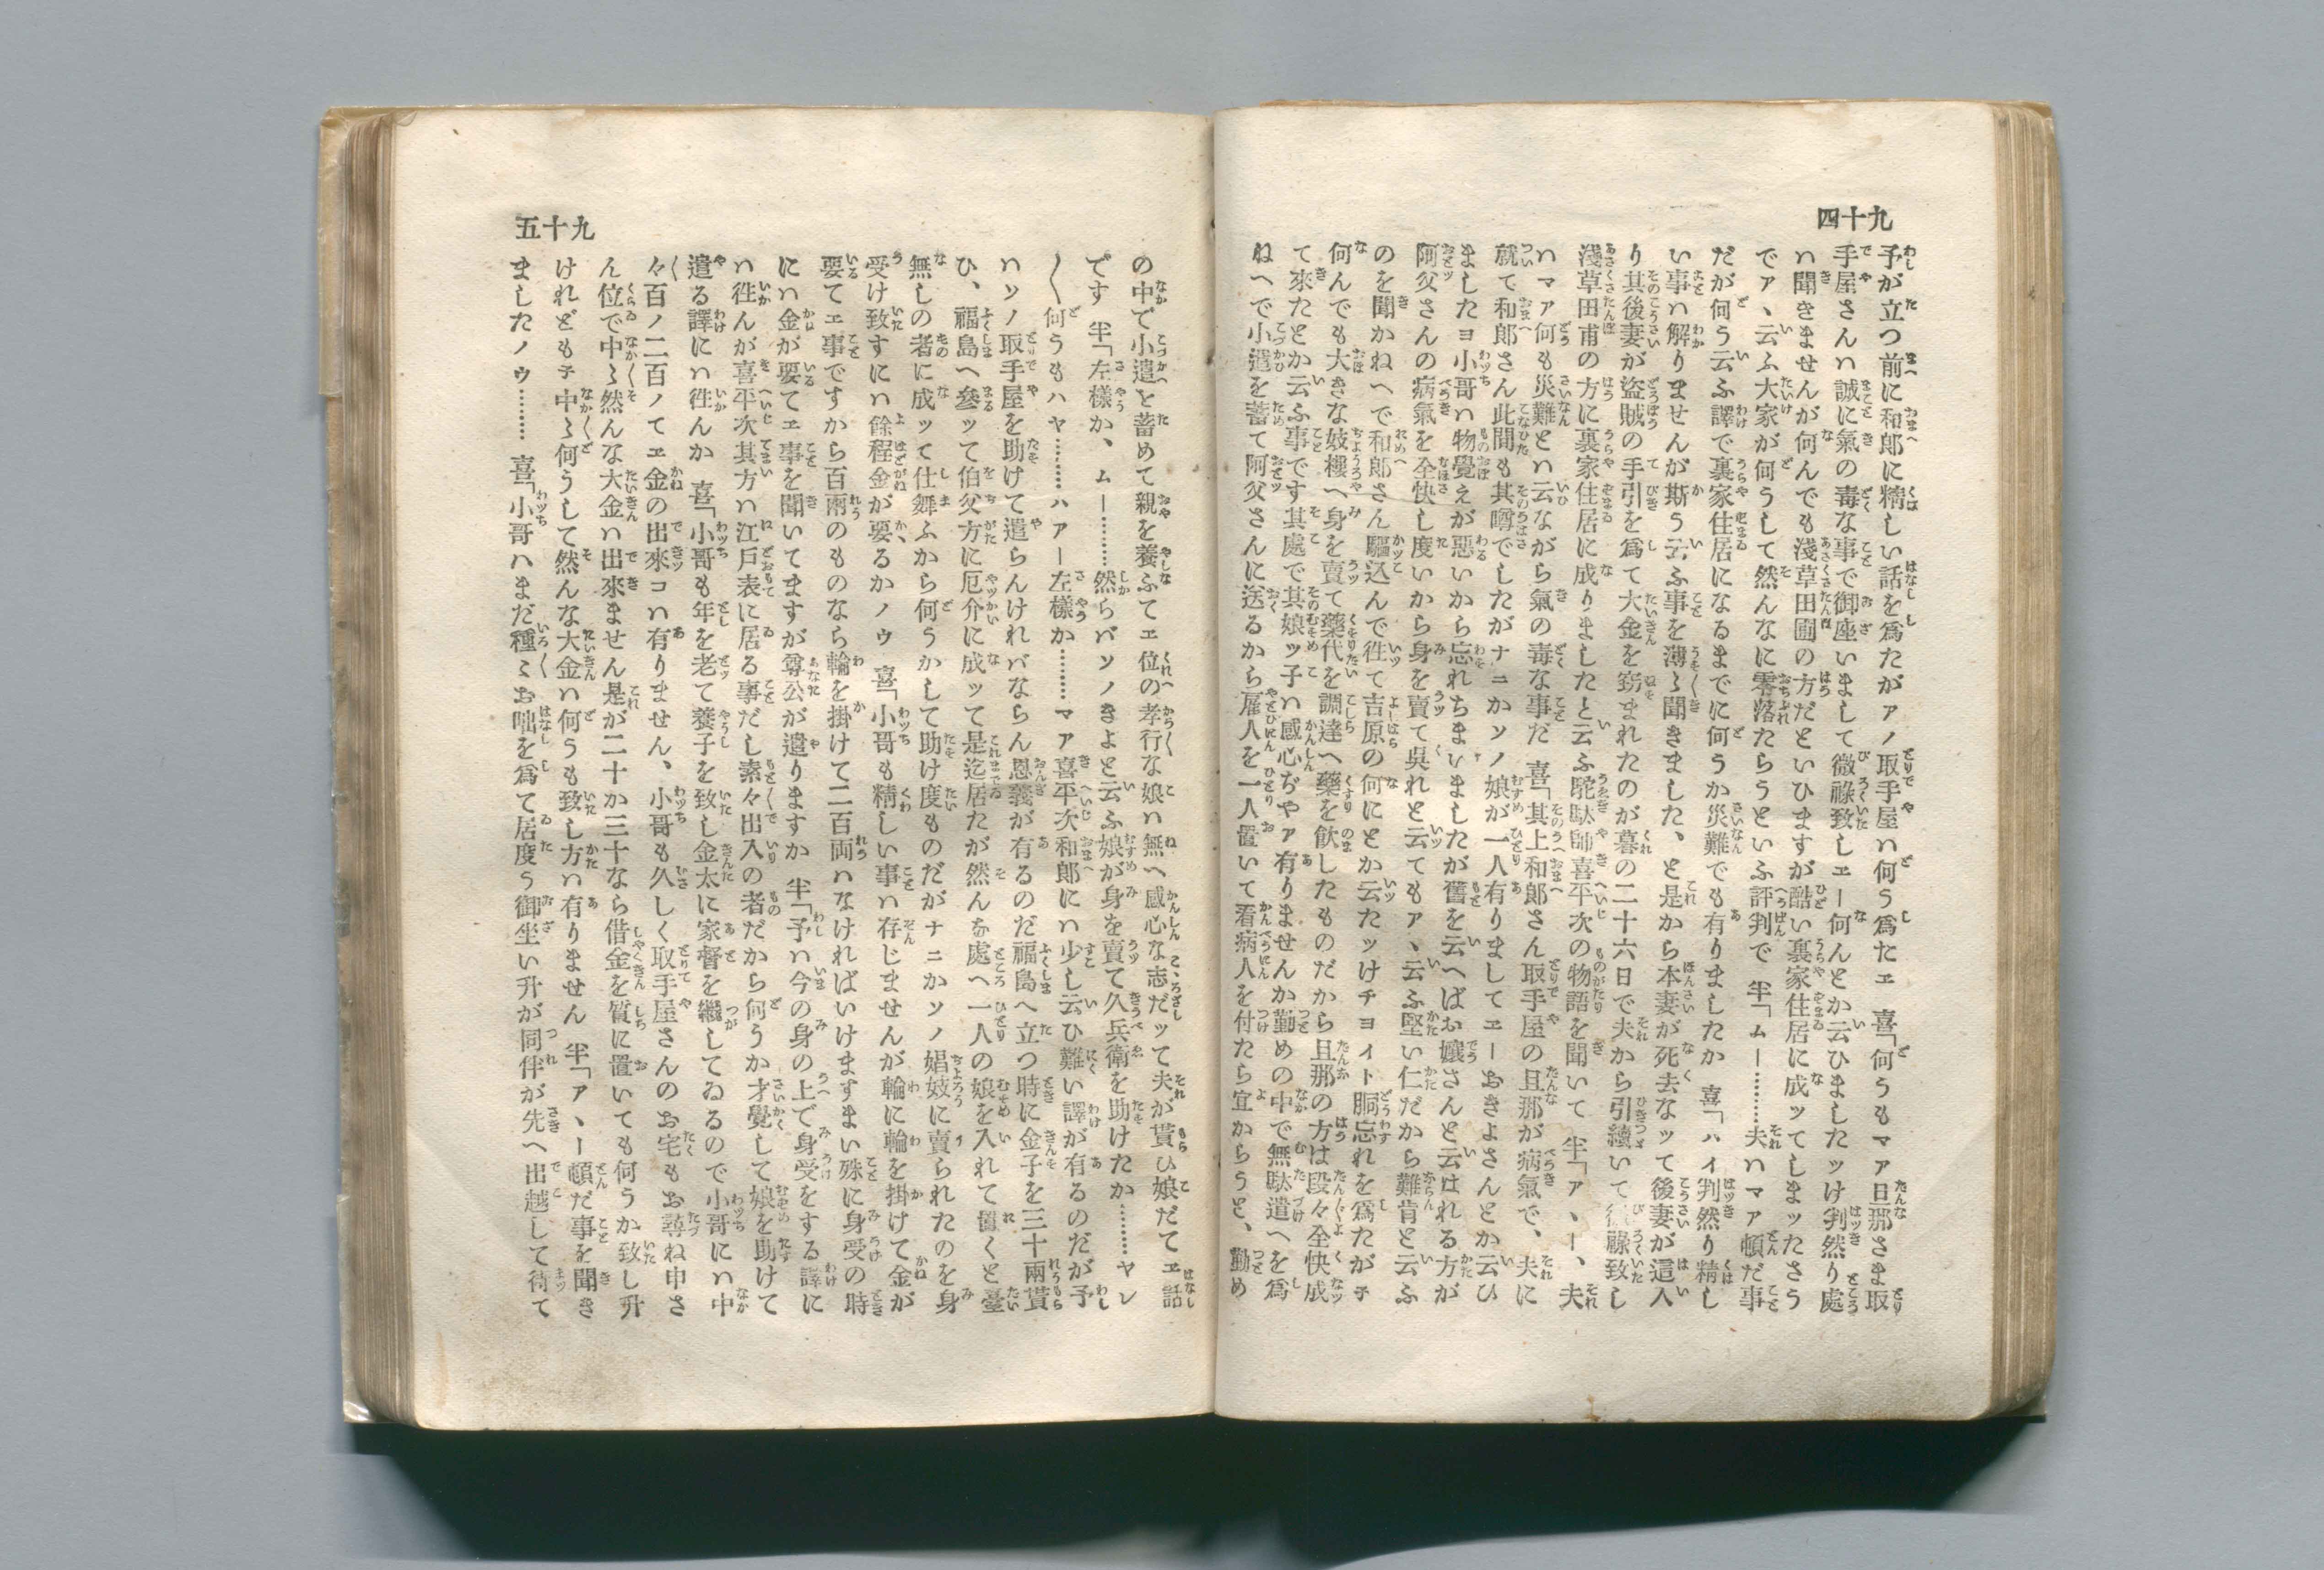 九十四
予が立つ前に和郎に精しい話を爲たがアノ取手屋ハ何う爲たヱ　喜「何うもマア旦那さま取
手屋さんハ誠に氣の毒な事で御座いまして微祿致しヱー何んとか云ひましたッけ判然り處
ハ聞きませんが何んでも淺草田圃の方だといひますが酷い裏家住居に成ッてしまッたさう
でア、云ふ大家が何うして然んなに零落たらうといふ評判で　半「ムー………夫ハマア頓だ事
だが何う云ふ譯で裏家住居になるまでに何うか災難でも有りましたか　喜「ハイ判然り精し
い事ハ解りませんが斯う云ふ事を薄〻聞きました、と是から本妻が死去なッて後妻が這入
り其後妻が盜賊の手引を爲て大金を窃まれたのが暮の二十六日で夫から引續いて微祿致し
淺草田甫の方に裏家住居に成りましたと云ふ駝駄師喜平次の物語を聞いて　半「ア、ー、夫
ハマア何も災難とハ云ながら氣の毒な事だ　喜「其上和郎さん取手屋の旦那が病氣で、夫に
就て和郎さん此間も其噂でしたがナニかソノ娘が一人有りましてヱーおきよさんとか云ひ
ましたヨ小哥ハ物覺えが惡いから忘れちまいましたが舊を云へばお孃さんと云はれる方が
阿父さんの病氣を全快し度いから身を賣て吳れと云てもア、云ふ堅い仁だから難肯と云ふ
のを聞かねへで和郎さん驅込んで徃て吉原の何にとか云たッけチヨイト胴忘れを爲たがチ
何んでも大きな妓樓へ身を賣て藥代を調達へ藥を飮したものだから旦那の方は段々全快成
て來たとか云ふ事です其處で其娘ッ子ハ感心ぢやア有りませんか勤めの中で無駄遣へを爲
ねへで小遣を蓄て阿父さんに送るから雇人を一人置いて看病人を付たら宜からうと、勤め
九十五
の中で小遣と蓄めて親を養ふてヱ位の孝行な娘ハ無へ感心な志だッて夫が貰ひ娘だてヱ話
です　半「左樣か、ムー………然らバソノきよと云ふ娘が身を賣て久兵衛を助けたか………ヤレ
〱何うもハヤ………ハアー左樣か………マア喜平次和郎にハ少し云ひ難い譯が有るのだが予
ハソノ取手屋を助けて遣らんけれバならん恩義が有るのだ福島へ立つ時に金子を三十兩貰
ひ、福島へ參ッて伯父方に厄介に成ッて是迄居たが然んな處へ一人の娘を入れて置くと臺
無しの者に成ッて仕舞ふから何うかして助け度ものだがナニかソノ娼妓に賣られたのを身
受け致すにハ餘程金が要るかノウ　喜「小哥も精しい事ハ存じませんが輪に輪を掛けて金が
要てヱ事ですから百兩のものなら輪を掛けて二百兩ハなければいけますまい殊に身受の時
にハ金が要てヱ事を聞いてますが尊公が遣りますか　半「予ハ今の身の上で身受をする譯に
ハ徃んが喜平次其方ハ江戶表に居る事だし素々出入の者だから何うか才覺して娘を助けて
遣る譯にハ徃んか　喜「小哥も年を老て養子を致し金太に家督を繼してゐるので小哥にハ中
々百ノ二百ノてヱ金の出來コハ有りません、小哥も久しく取手屋さんのお宅もお尋ね申さ
ん位で中〻然んな大金ハ出來ません是が二十か三十なら借金を質に置いても何うか致し升
けれどもチ中〻何うして然んな大金ハ何うも致し方ハ有りません　半「ア、ー頓だ事を聞き
ましたノウ………　喜「小哥ハまだ種〻お咄を爲て居度う御坐い升が同伴が先へ出越して待て